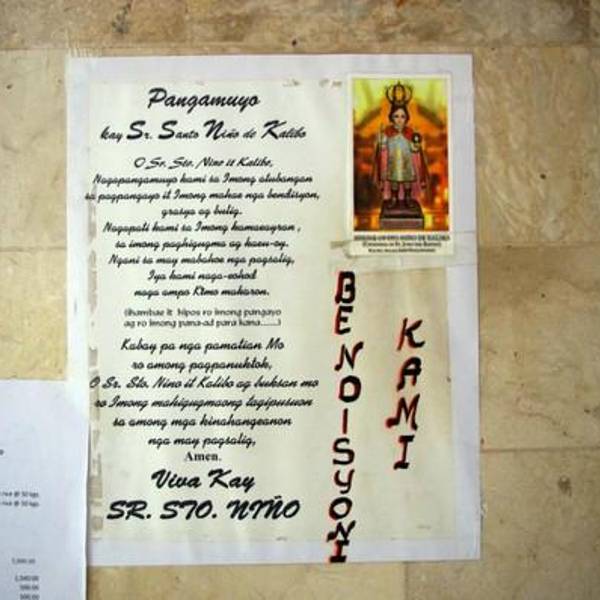 Pangamuyo
kay Sr. Santo Niño de Kalibo
O Sr. Sto. Nino it Kalibo,
Nagapangamuyo kami sa Imong atubangan
sa pagpangayo it Imong mahae nga bendisyon,
grasya ag bulig.
Nagapati kami sa Imong kamaeayran,
sa imong paghigugma ag kaeu-oy.
Ngani sa may mabakoe nga pagsalig,
Iya kami naga-eohod
naga ampo Kimo makaron.
(ihambae it hipos ro imong pangayo
ag ro imong pana-ad para kana......)
Kabay pa nga pamatian Mo
ro among pagpanuktok,
O Sr. Sto. Nino it Kalibo ag buksan mo
ro Imong mahigugmaong tagipusuon
sa among mga kinahangeanon
nga may pagsalig,
Amen.
Viva Kay
SR. STO. NIÑO
BENDISYONI
KAMI
@ 50 kgs.
@ 50 kgs.
500.00